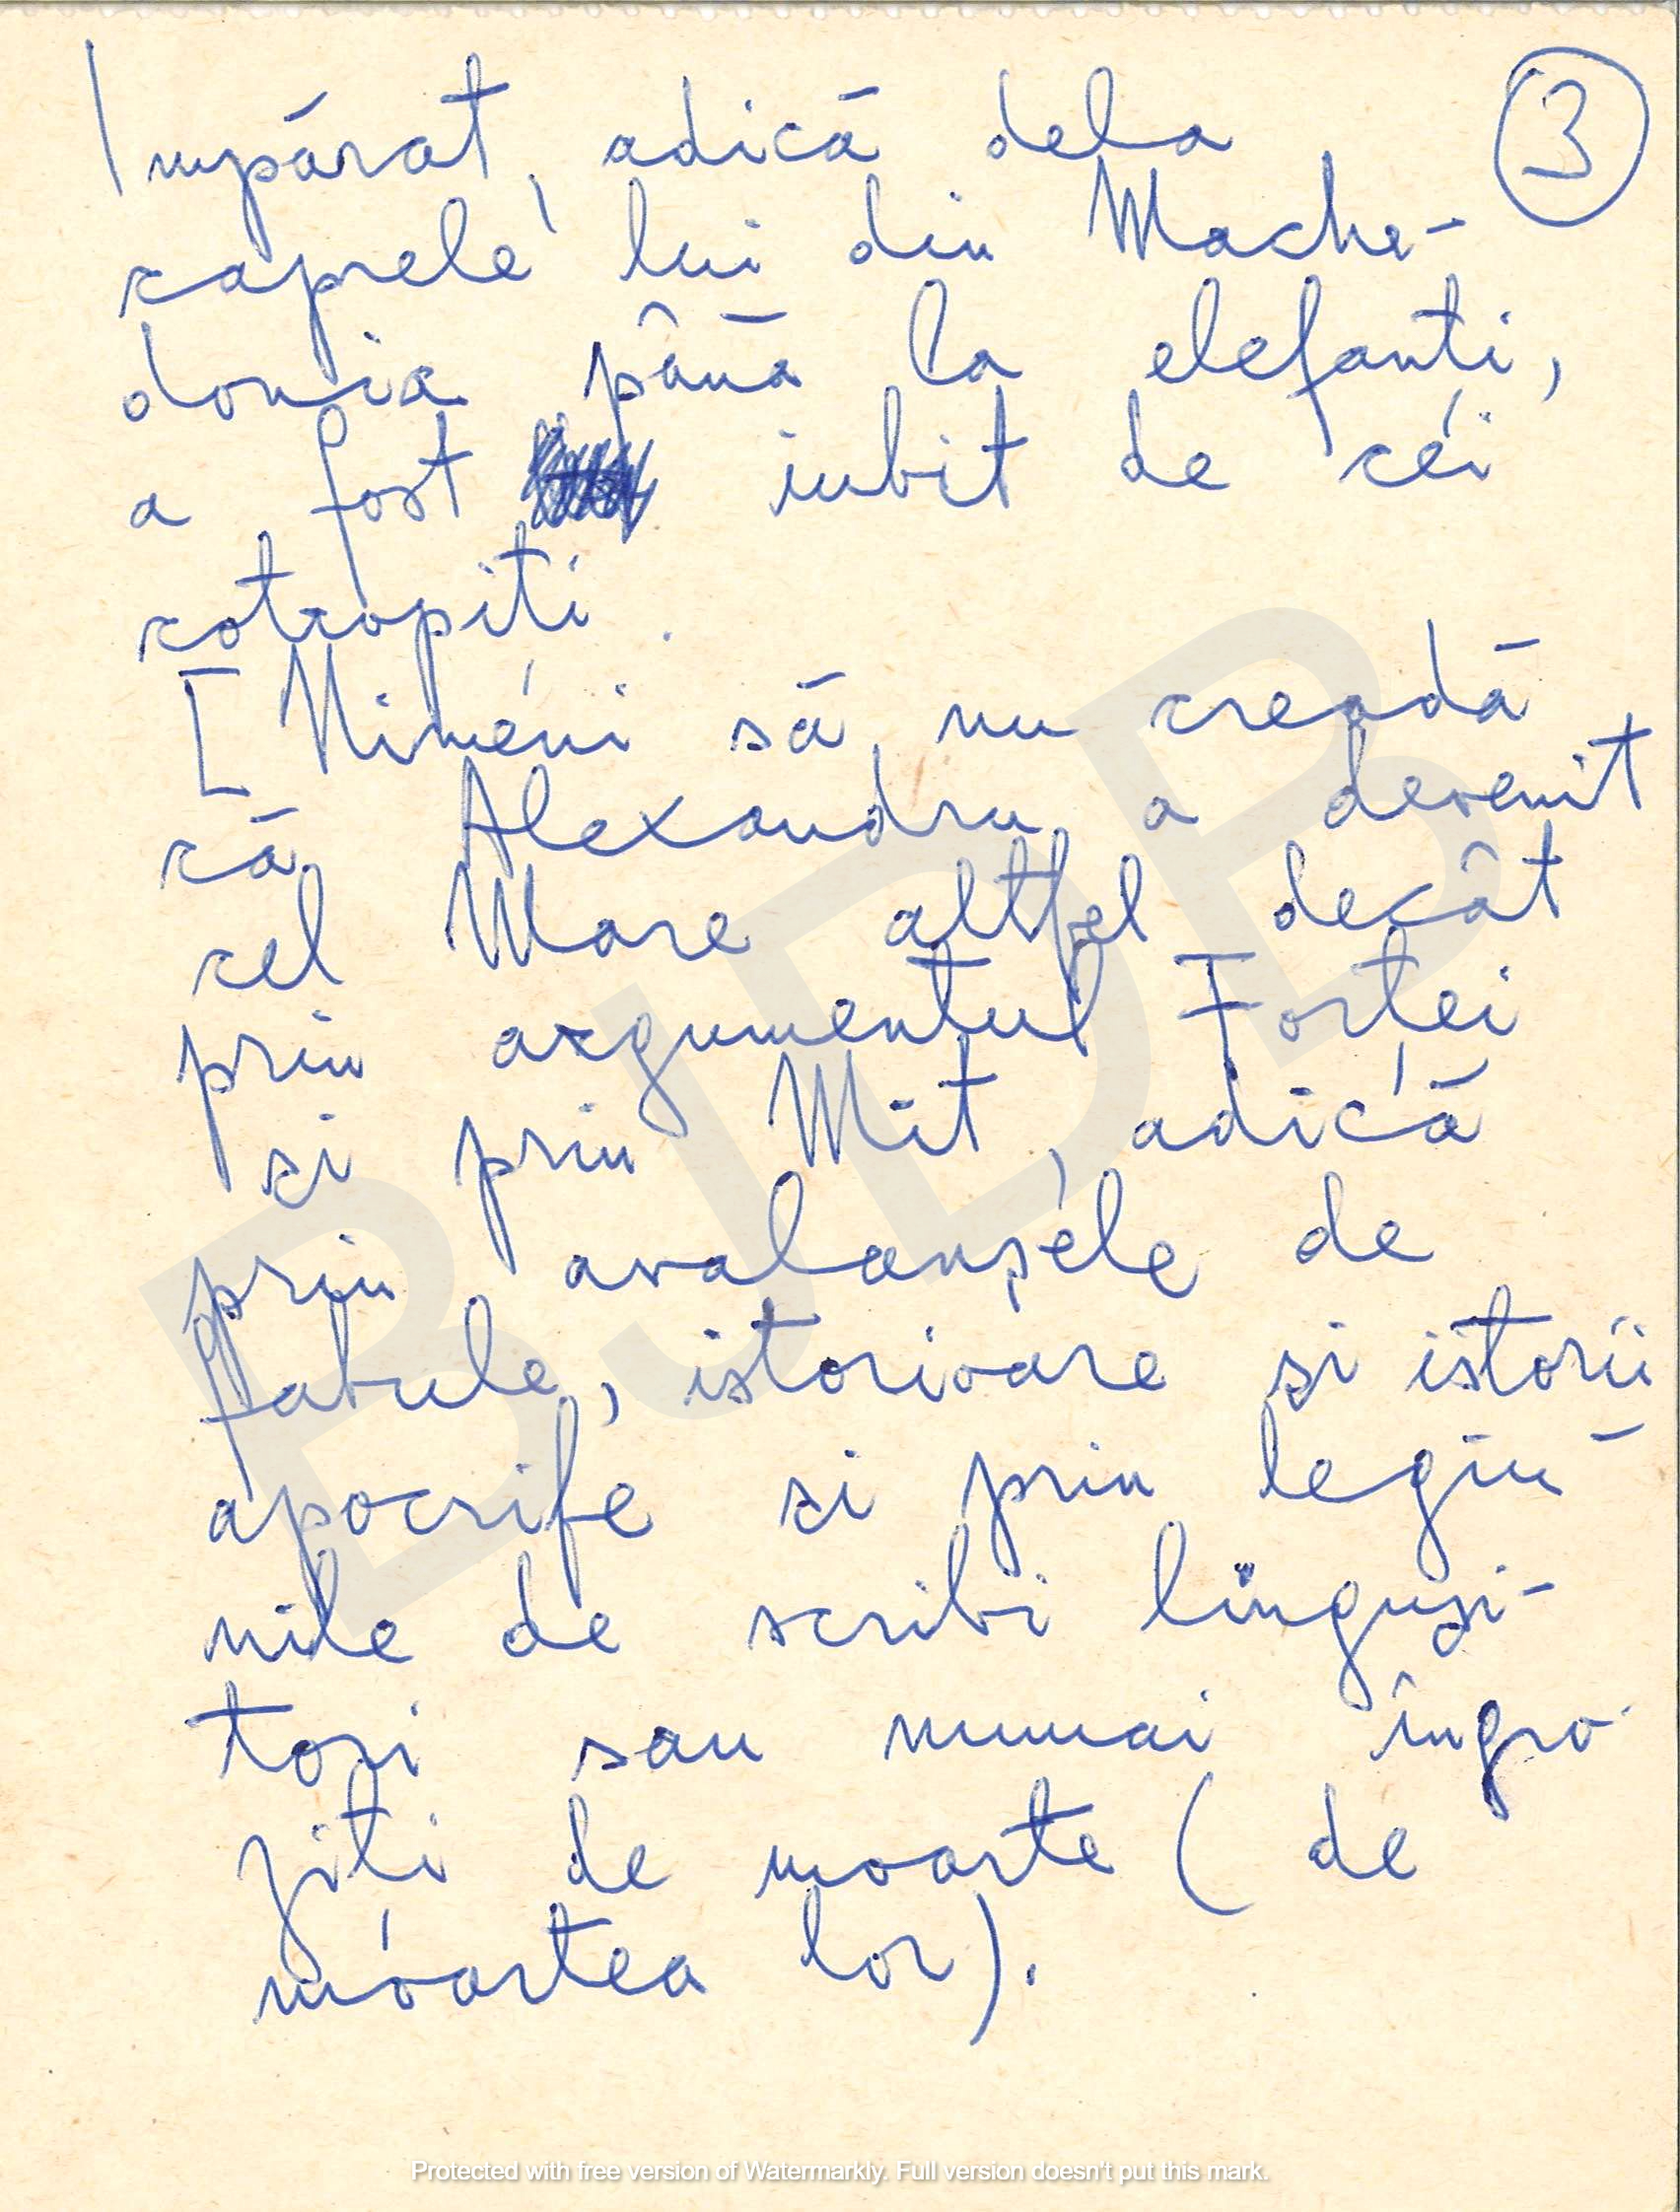 Impărat, adică dela ③
caprele lui din Mache-
donia până la elefanti,
a fost iubit de cei
cotropiti.
[Nimeni să nu creadă
că Alexandru a devenit
cel Mare altfel decât
prin argumentul Fortei
si prin Mit, adică
prin avalanșele de
fabule, istorioare si istorii
apocrife si prin legiu-
nile de scribi lingusi-
tori sau numai îngro-
ziti de moarte (de
moartea lor).
BJDB
Protected with free version of Watermarkly. Full version doesn't put this mark.